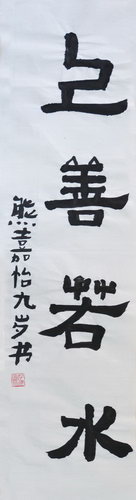 上善若水
熊嘉怡九岁书